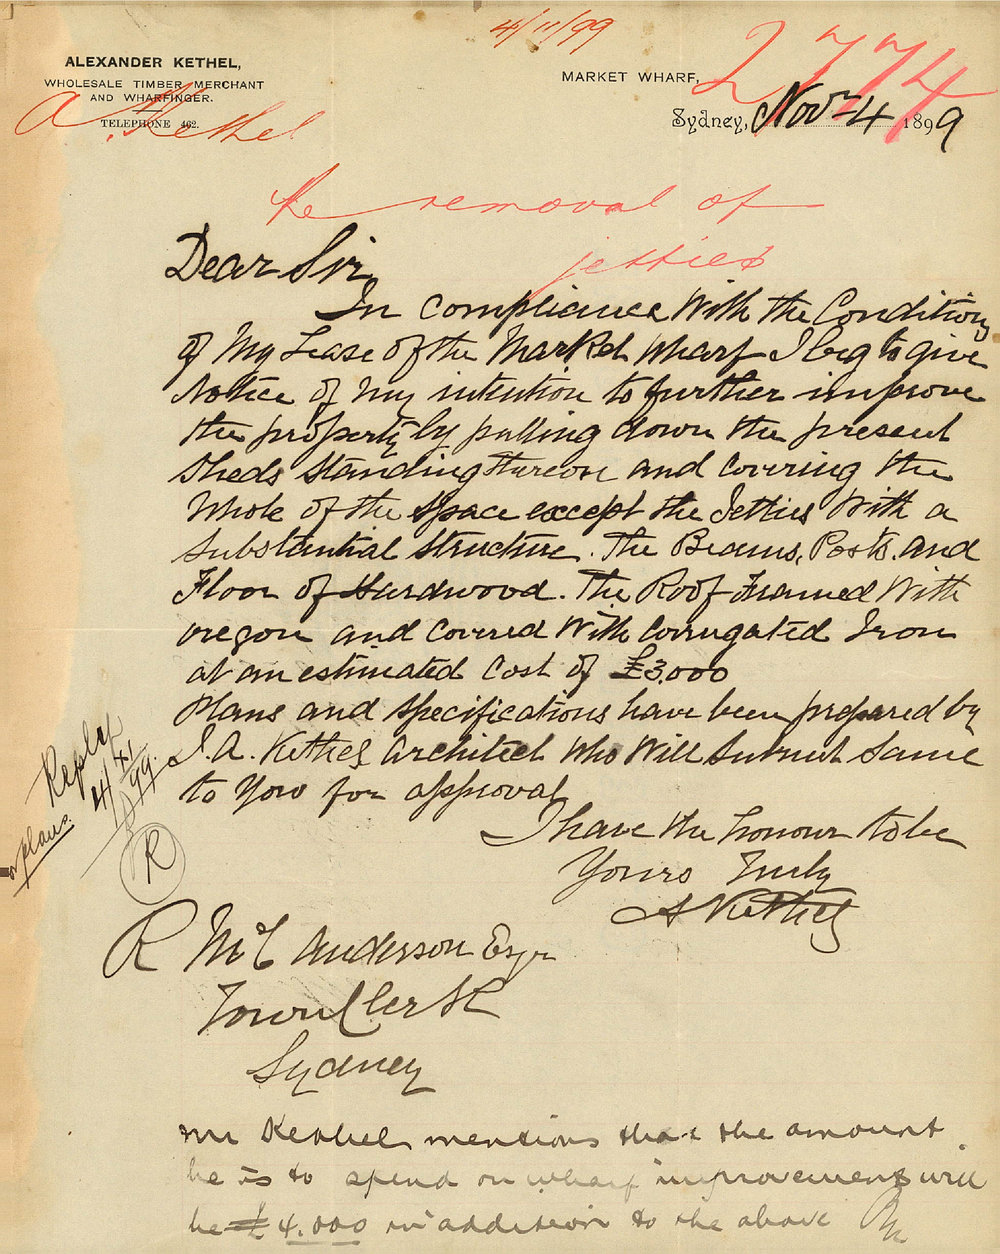 4/11/99
ALEXANDER KETHEL,
WHOLESALE TIMBER MERCHANT
AND WHARFINGER.
TELEPHONE 462.
A. Kethel
MARKET WHARF,
2774
Sydney, Novr 4 1899
Re removal of
jetties
Dear Sir,
In compliance With the Conditions
of My Lease of the Market Wharf I beg to give
Notice of My intention to further improve
the property by pulling down the present
Sheds Standing thereon and Covering the
Whole of the Space except the Jetties With a
Substantial Structure. The Beams, Posts. and
Floor of Hardwood. The Roof Framed With
oregon and Covered With Corrugated Iron
at an estimated Cost of £3,000
Plans and Specifications have been prepared by
J. A. Kethel Architect Who Will Submit Same
to You for approval
I have the honour to be
Yours Truly
A Kethel
plans
R
R McC Anderson Esqr
Town Clerk
Sydney
Mr Kethel mentions that the amount
he is to spend on wharf improvements will
be £4.000 in addition to the above